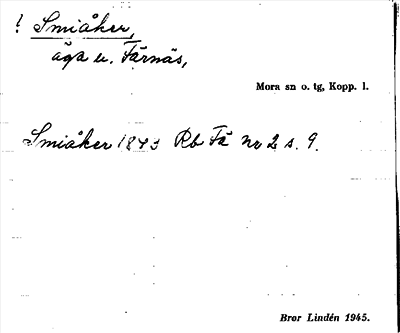 ! Smiåker,
äga u. Färnäs,
Mora sn o. tg, Kopp. l.
Smiåker 1843 Rb Fä nr 2 s. 9.
Bror Lindén 1945.